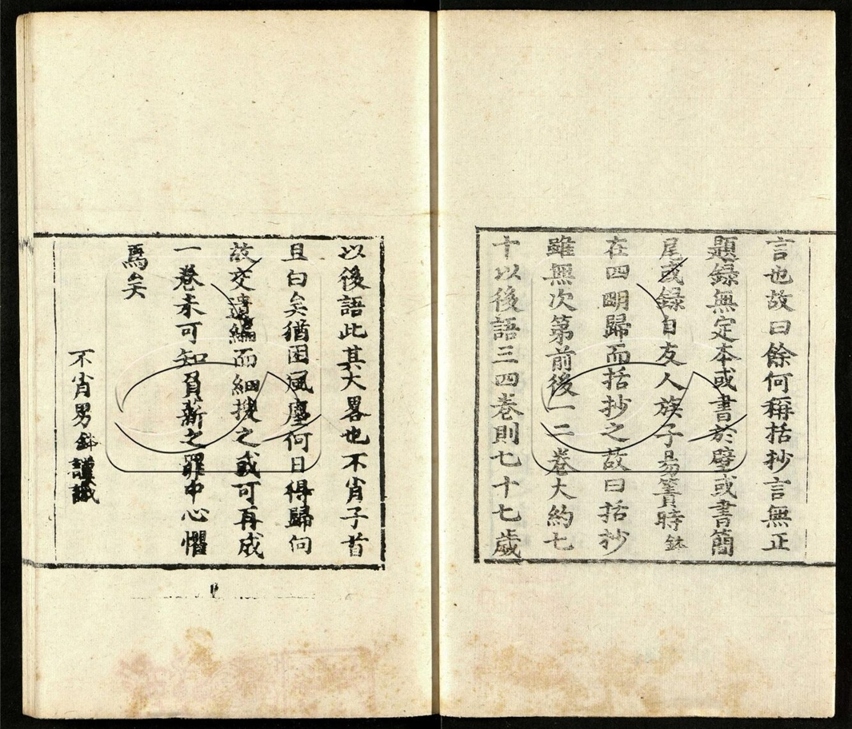 言也故曰餘何稱括抄言無正
題録無定本或書於壁或書簡
尾或録自友人族子易簀時鉢
在四明歸而括抄之故曰括抄
雖無次第前後一二卷大約七
十以後語三四卷則七十七歲
以後語此其大畧也不肖子首
且白矣猶困風塵何日得歸向
故交遺編而細搜之或可再成
一卷未可知負薪之罪中心懼
焉矣
不肖男鉢謹識